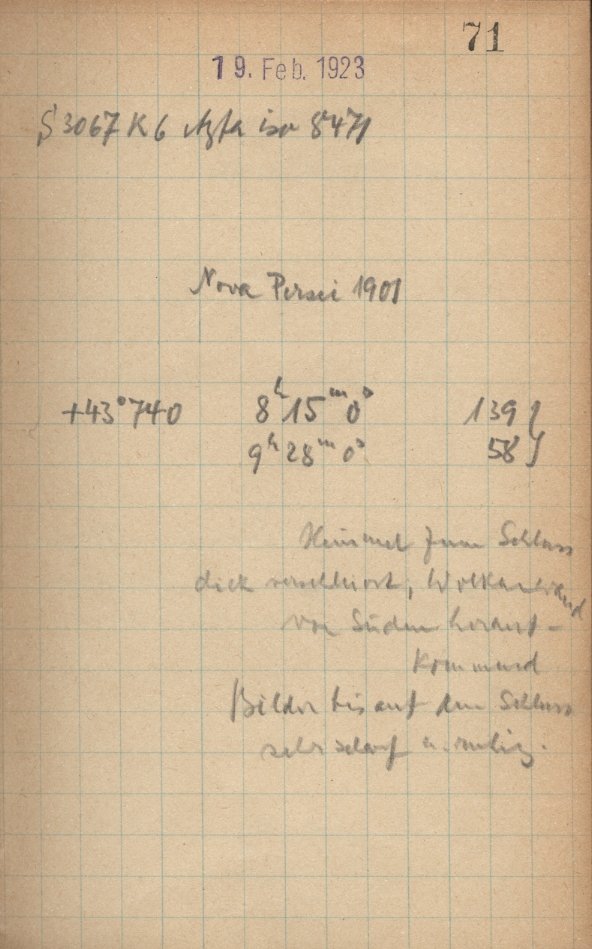 71
19. Feb. 1923
S 3067 K 6 Agfa iso 8471
Nova Persei 1901
+43°740 8ʰ15ᵐ0ˢ 139 }
9ʰ28ᵐ0ˢ 58 }
Himmel zum Schluss
dick verschleiert, Wolkenwand
von Süden herauf-
kommend
Bilder bis auf den Schluss
sehr scharf u. ruhig.